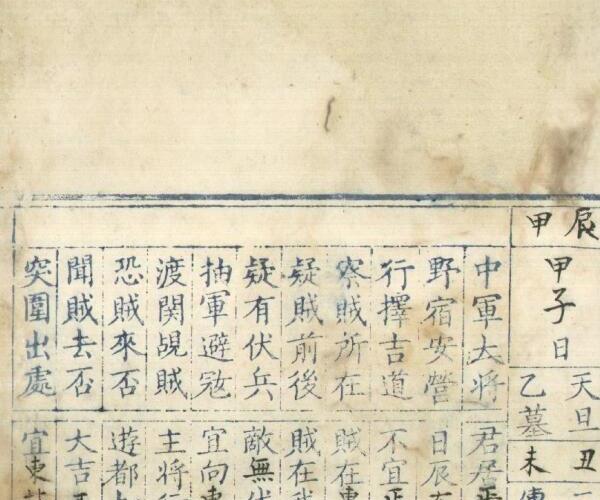 甲辰
甲子日
天旦丑
乙墓未
中軍大將
野宿安營
行擇吉道
察賊所在
疑賊前後
疑有伏兵
抽軍避寇
渡関覘賊
恐賊來否
聞賊去否
突圍出處
君居
日辰
不宜
賊在
賊在
敵無伏
宜向東
主將行
遊都
大吉
宜東